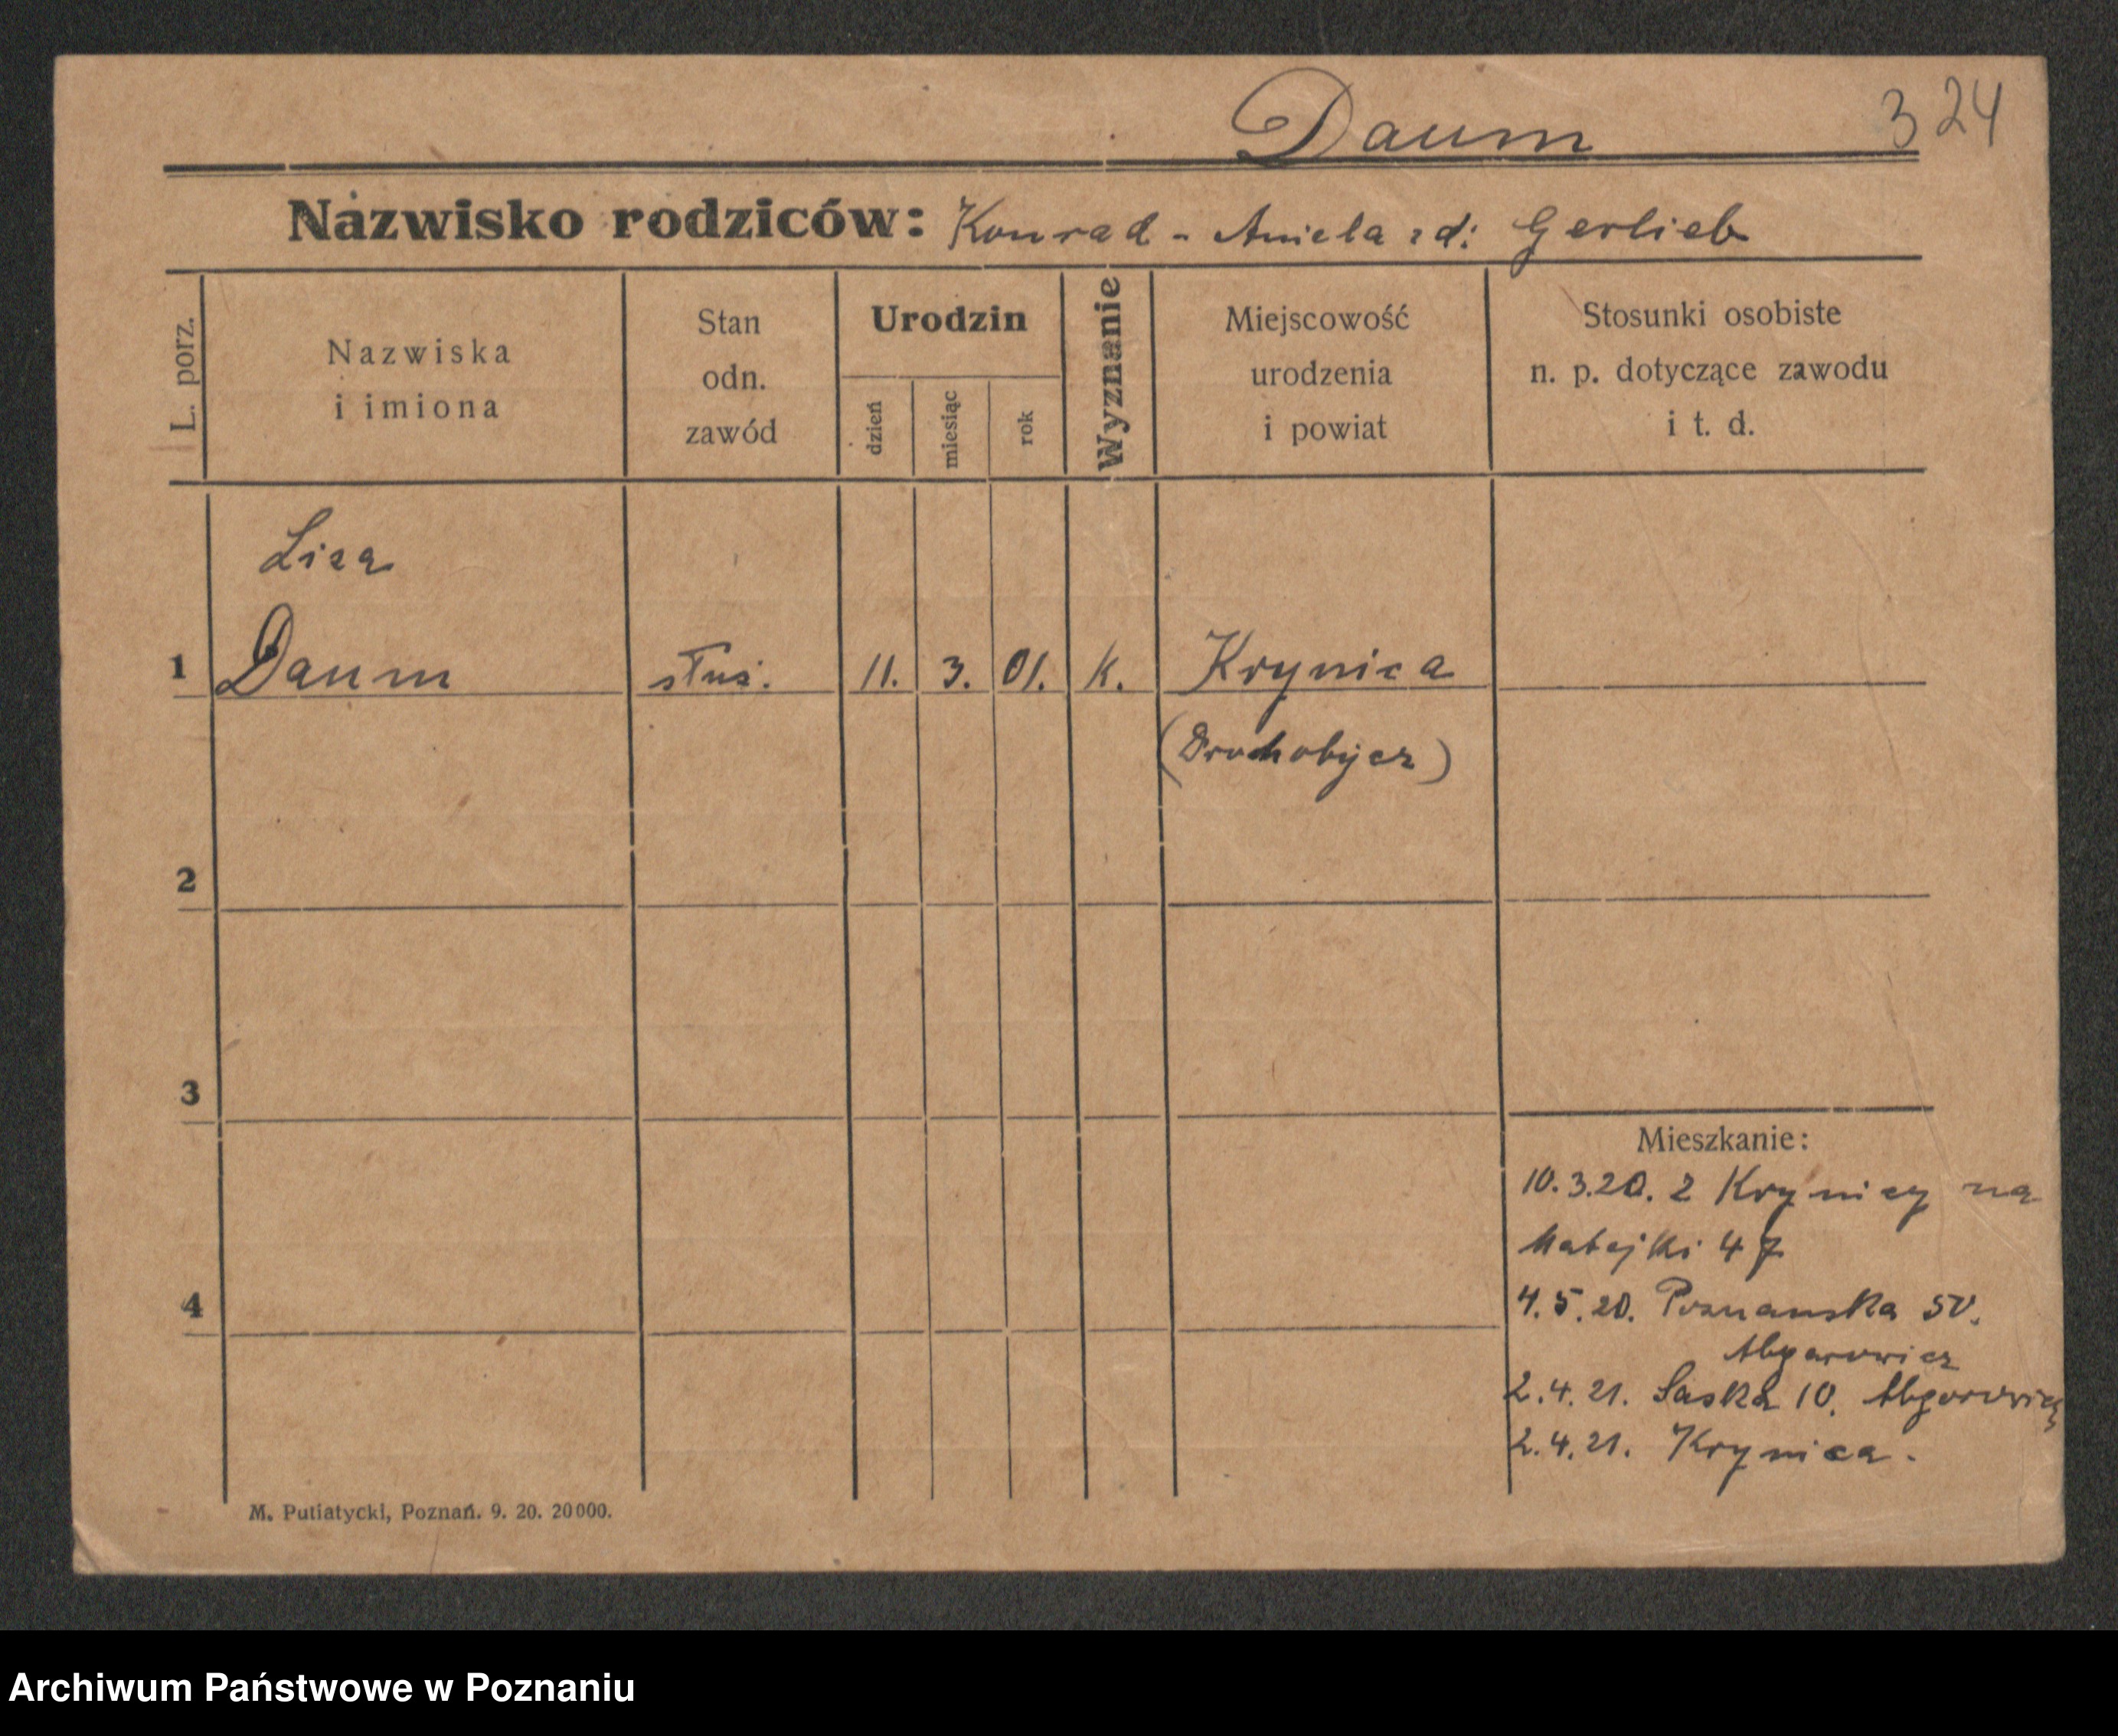 Daum
324
Nazwisko rodziców: Konrad - Aniela zd: Gerlieb
L. porz.
Nazwiska
i imiona
Stan
odn.
zawód
Urodzin
dzień
miesiąc
rok
Wyznanie
Miejscowość
urodzenia
i powiat
Stosunki osobiste
n. p. dotyczące zawodu
i t. d.
Liza
1 Daum służ. 11. 3. 01. K. Krynica
(Drohobycz)
2
3
Mieszkanie:
10.3.20. z Krynicy na
Matejki 47
4
4.5.20. Poznanska 50.
Abgarowicz
2.4.21. Saska 10. Abgarowicz
2.4.21. Krynica.
M. Putiatycki, Poznań. 9. 20. 20000.
Archiwum Państwowe w Poznaniu